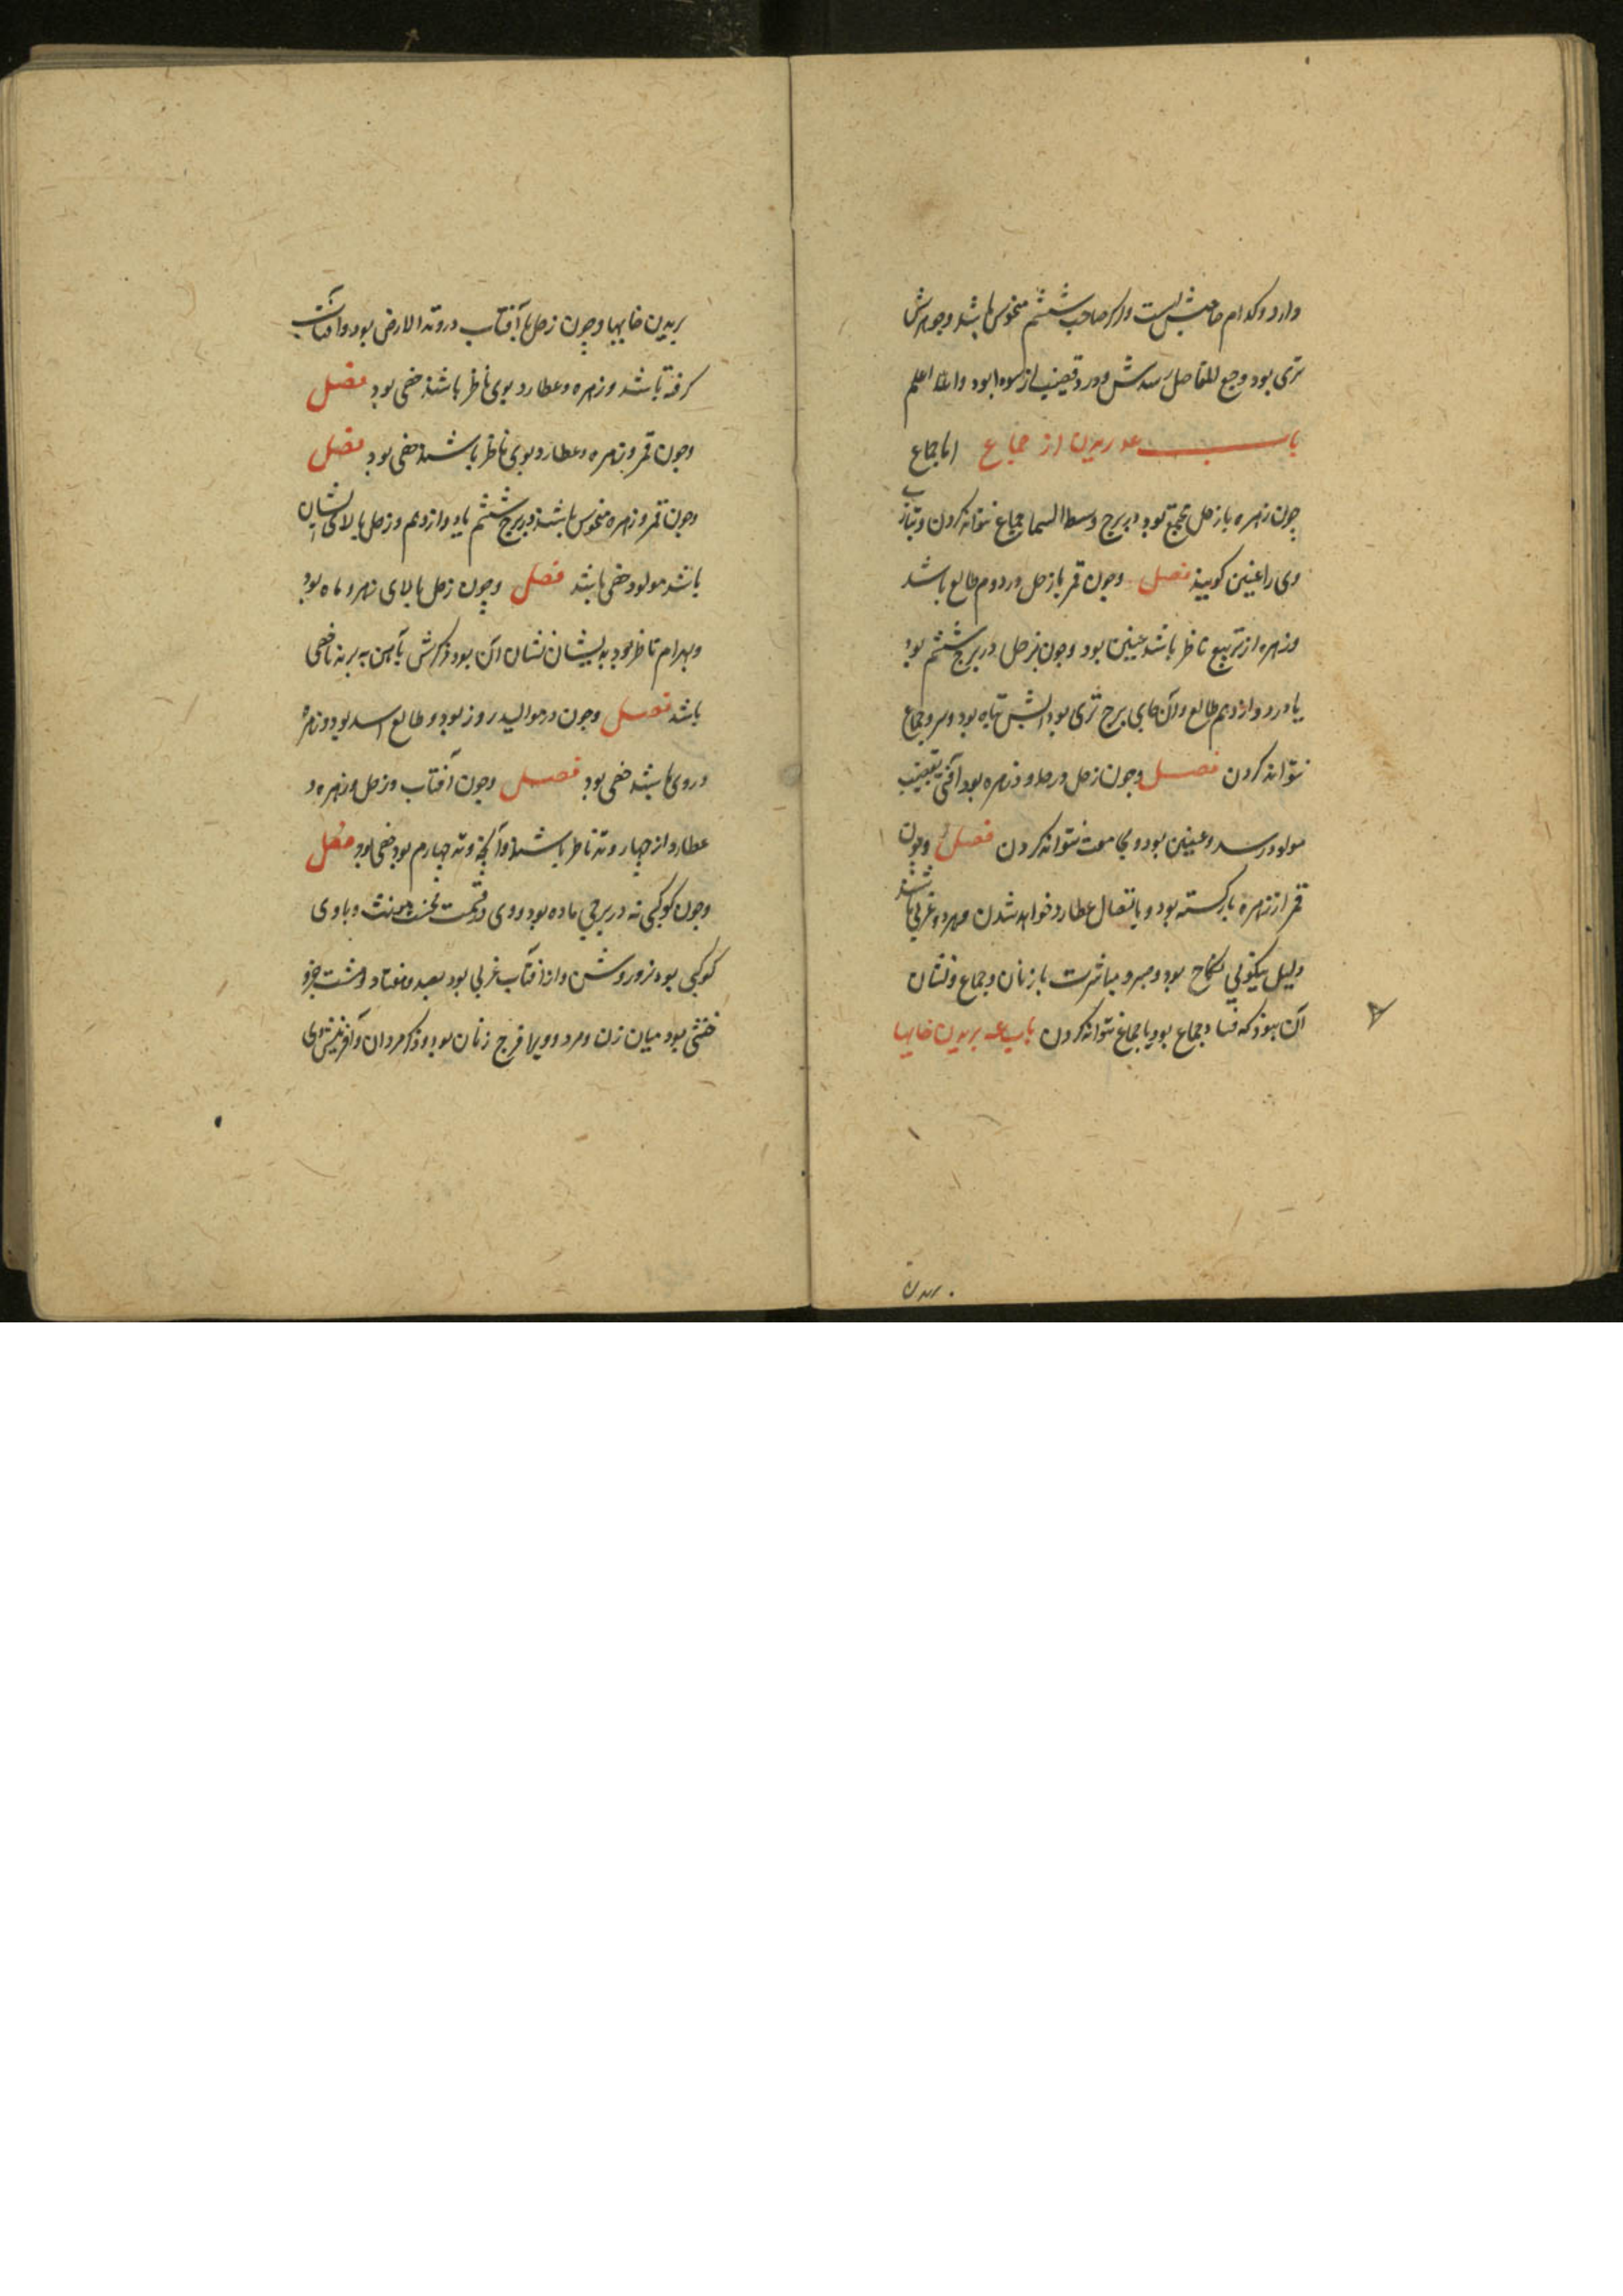 دارد و کدام جانبش است و اگر صاحب ششم منحوس باشد و جوهرش
تری بود وجع المفاصل رسدش و درد قضیب از سودا بود والله اعلم
باب عه بریدن از جماع اما جماع
چون زهره با زحل مجتمع بود در برج وسط السما جماع نتواند کردن و بتازی
وی را عنین گویند فصل وچون قمر با زحل در دوم طالع باشد
وزهره از تربیع ناظر باشد عنین بود وچون زحل در برج ششم بود
یا در دوازدهم طالع وآن جای برج تری بود تباه بود و سرد جماع
نتواند کردن فصل وچون زحل در حد و زهره بود آفتی بقضیب
مولود رسد و عنین بود و مجامعت نتواند کردن فصل وچون
قمر از زهره بازگشته بود و باتصال عطارد خواهد شدن و هر دو غربی باشند
دلیل نیکویی نکاح بود و مباشرت با زنان و جماع ونشان
آن بود که فساد جماع بود یا جماع نتواند کردن باب عه بریدن خایها
بریدن
بریدن خایها وچون زحل با آفتاب در وتد الارض بود وآفتاب
گرفته باشد وزهره وعطارد بوی ناظر باشند خصی بود فصل
وچون قمر وزهره وعطارد بوی ناظر باشند خصی بود فصل
وچون قمر وزهره منحوس باشند در برج ششم یا دوازدهم وزحل بالای ایشان
باشد مولود خصی باشد فصل وچون زحل بالای زهره وماه بود
وبهرام ناظر بود بدیشان نشان آن بود ذکرش بآهن ببرند تا خصی
باشد فصل وچون در موالید روز بود وطالع اسد بود وزهره
در وی باشد خصی بود فصل وچون آفتاب وزحل وزهره و
عطارد از چهار وتد ناظر باشند وآنچه وتد چهارم بود خصی بود فصل
وچون کوکبی نه در برجی ماده بود ووی در قسمت مونث وباوی
کوکبی بود نر وروشن واز آفتاب غربی بود ببعد وهفتاد وهشت جزو
خنثی بود میان زن ومرد ووی را فرج زنان بود وذکر مردان وآفرینش